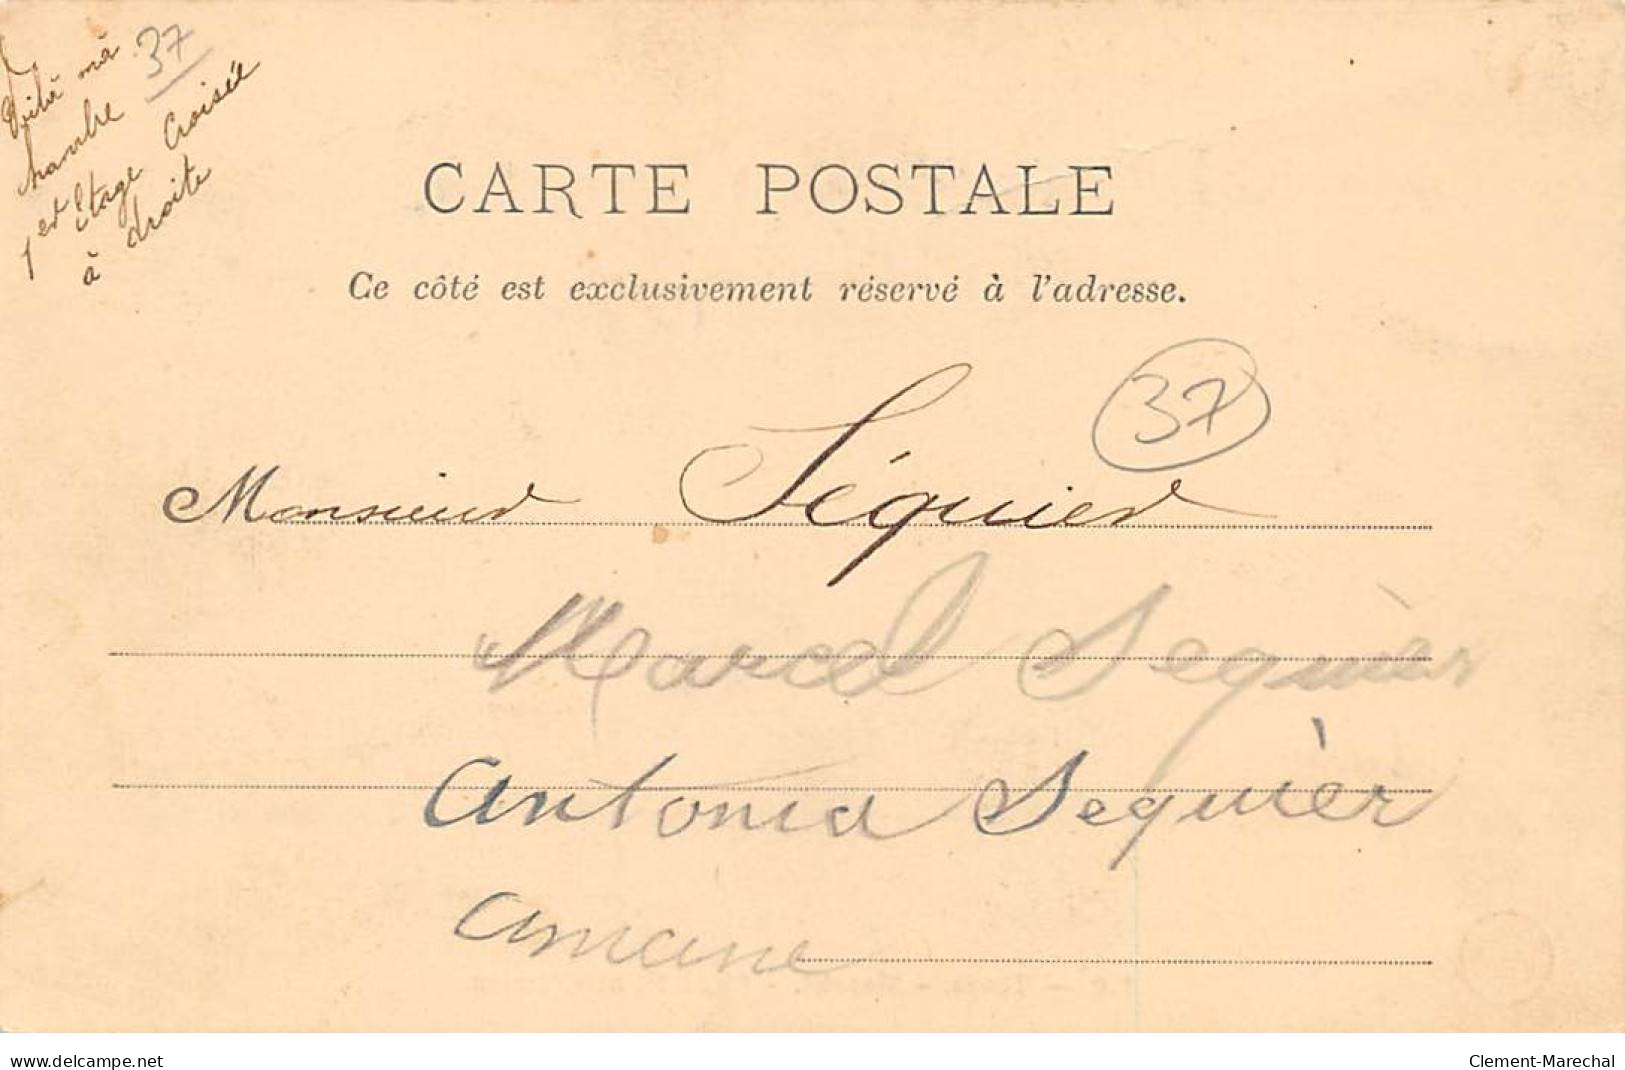 Voilà ma 37
chambre
1er Etage Croisée
à droite
CARTE POSTALE
Ce côté est exclusivement réservé à l'adresse.
37
Monsieur Séguier
Marcel Seguièr
Antonia Seguièr
www.delcampe.net
Clement-Marechal